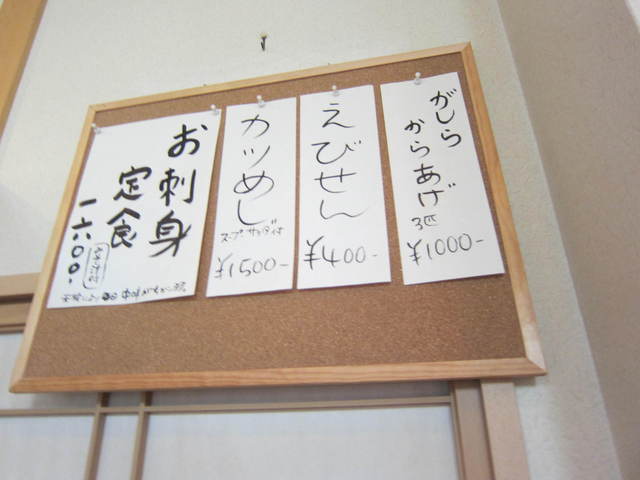 がしら
からあげ
3匹
¥1000-
えびせん
¥400-
カツめし
スープ サラダ付
¥1500-
お刺身
定食
一六〇〇.